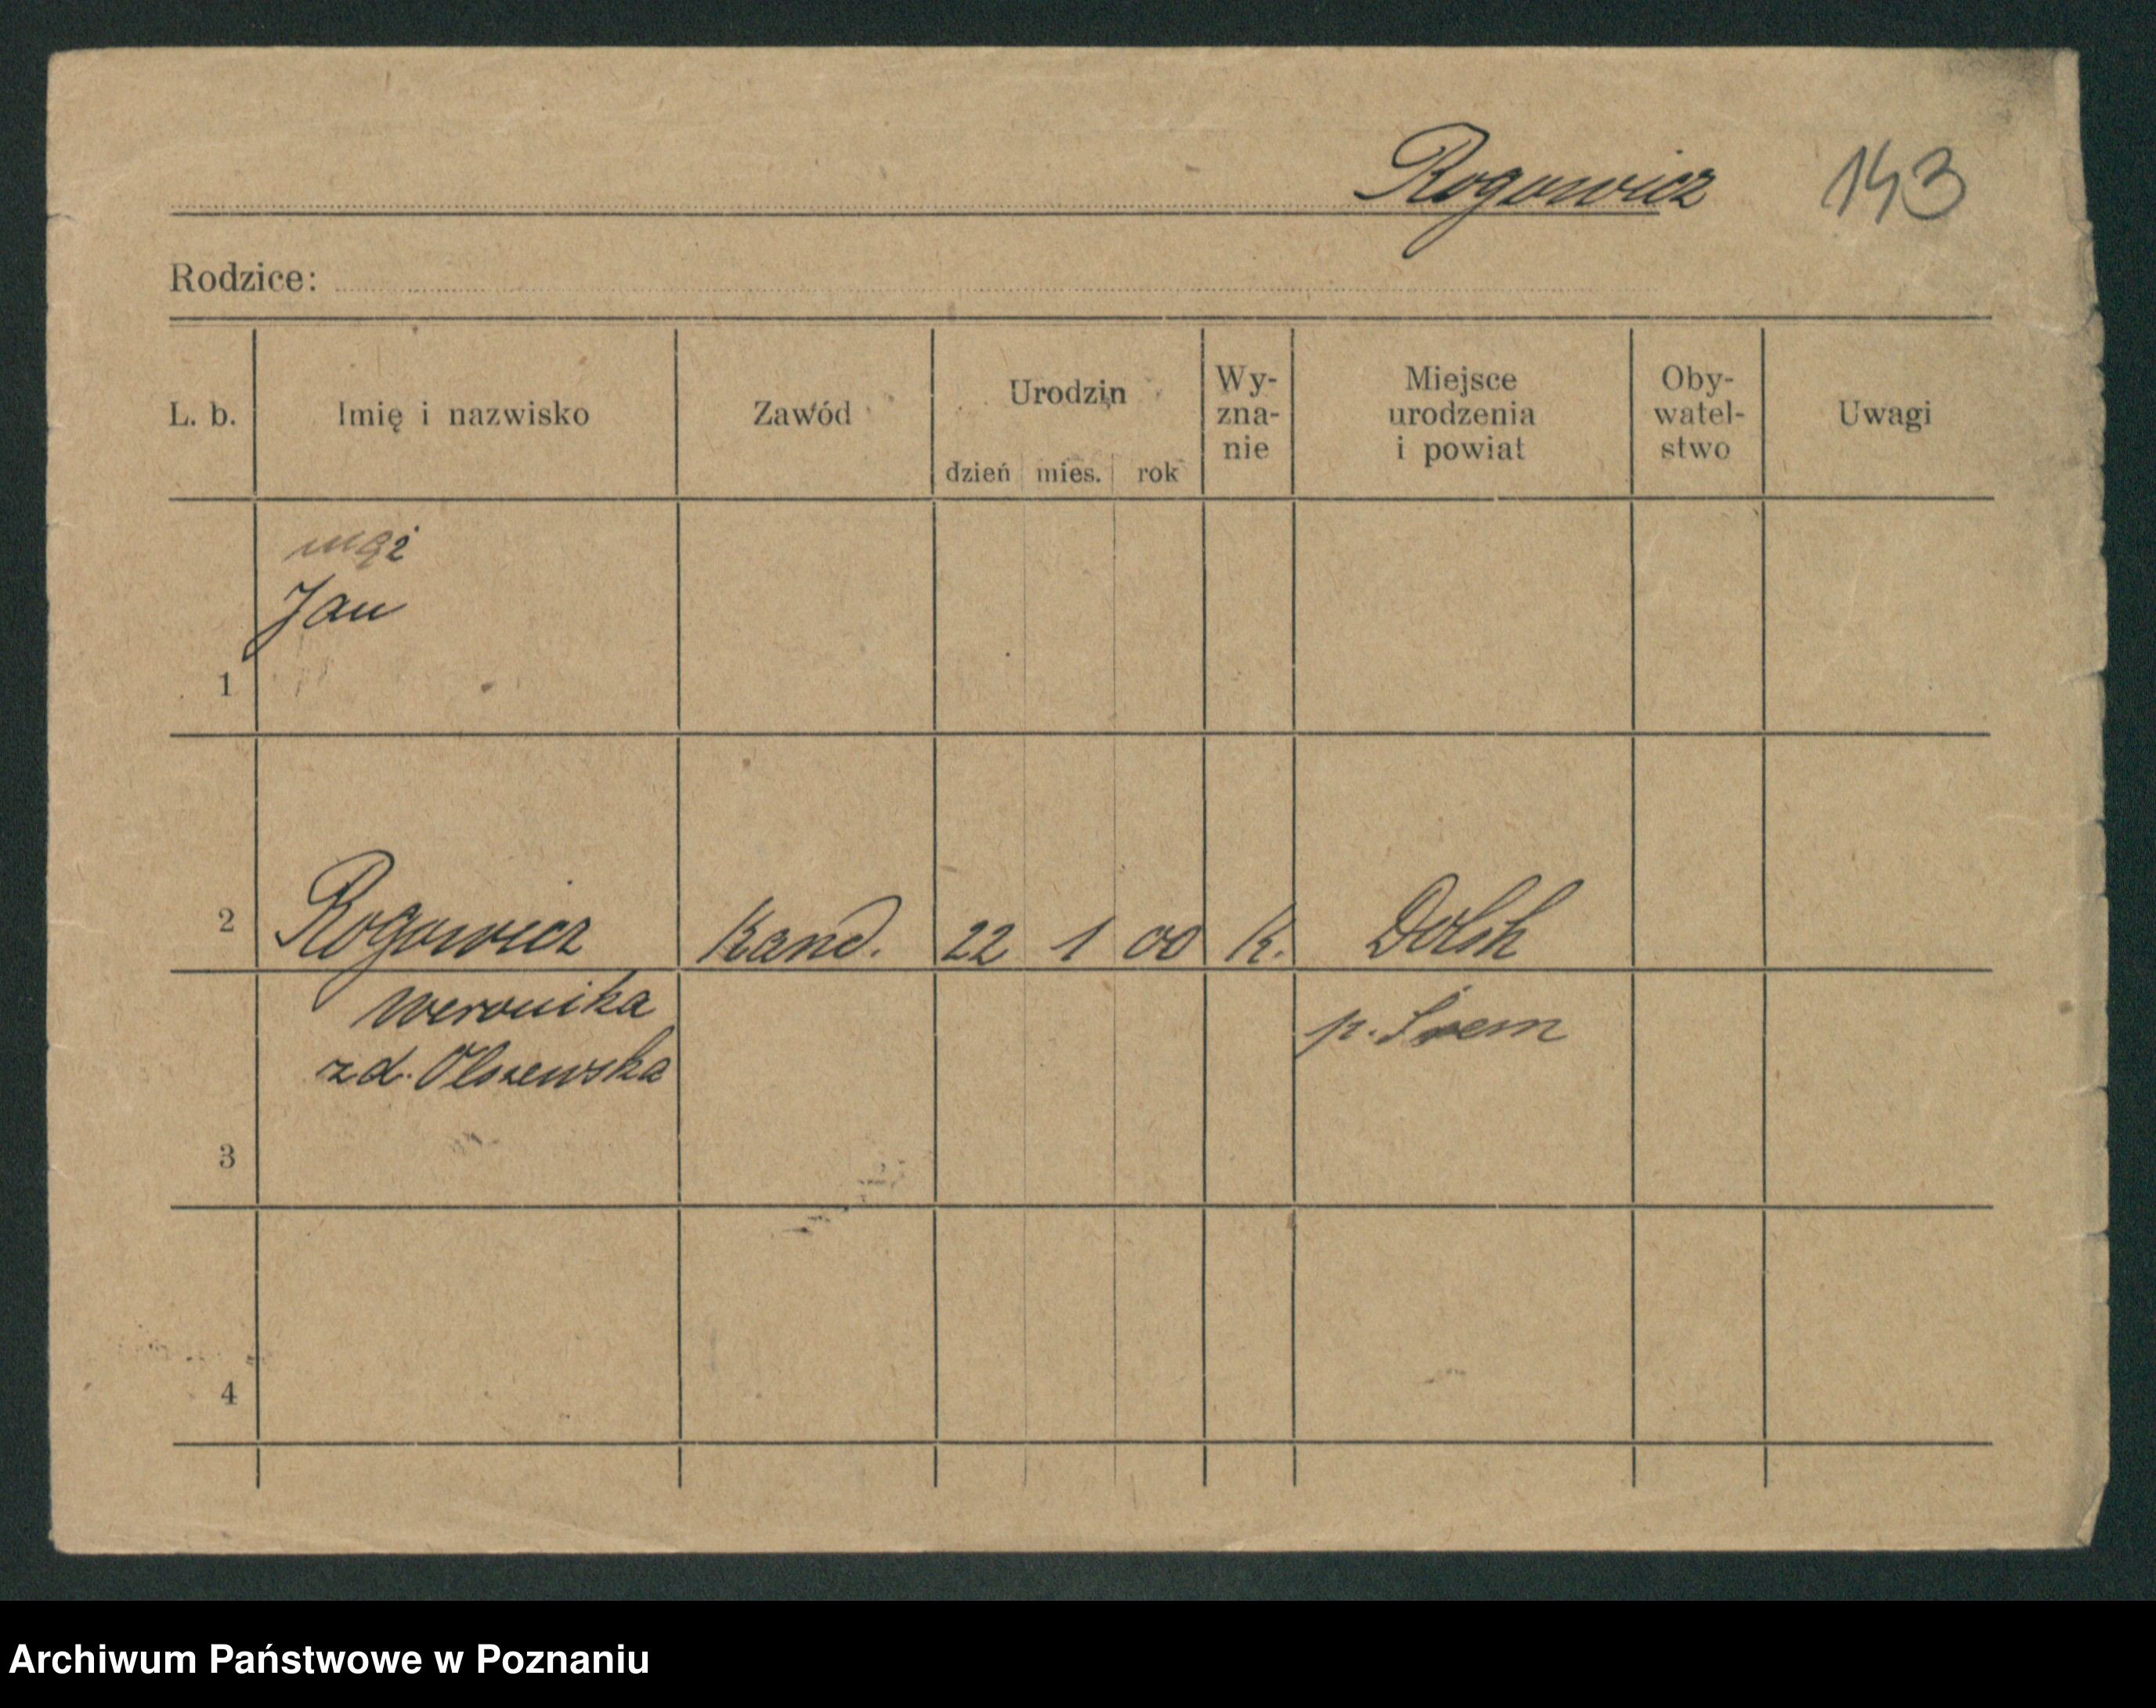 Rogowicz 143
Rodzice:
L. b. Imię i nazwisko Zawód Urodzin dzień mies. rok Wy-zna-nie Miejsce urodzenia i powiat Oby-watel-stwo Uwagi
mąż
Jan
1
2 Rogowicz Hand. 22 1 00 K. Dolsk
Weronika p. Śrem
zd. Olszewska
3
4
Archiwum Państwowe w Poznaniu